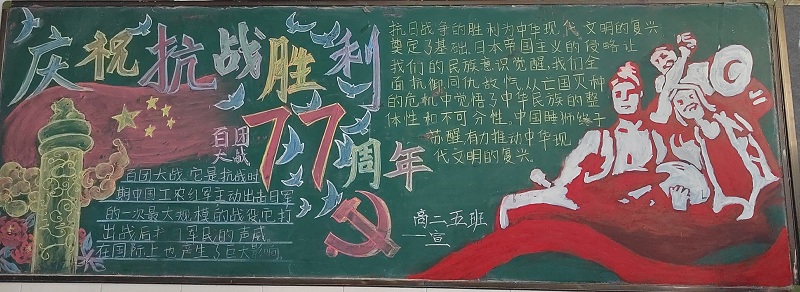 庆祝抗战胜利
77周年
百团
大战
百团大战,它是抗战时
期中国工农红军主动出击日军
的一次最大规模的战役它打
出战后扩了军民的声威
在国际上也产生了巨大影响
抗日战争的胜利为中华现代文明的复兴
奠定了基础.日本帝国主义的侵略让
我们的民族意识觉醒.我们全
面抗御同仇敌忾,从亡国灭种
的危机中觉悟了中华民族的整
体性和不可分性,中国睡狮终于
苏醒有力推动中华现
代文明的复兴.
高二五班
宣